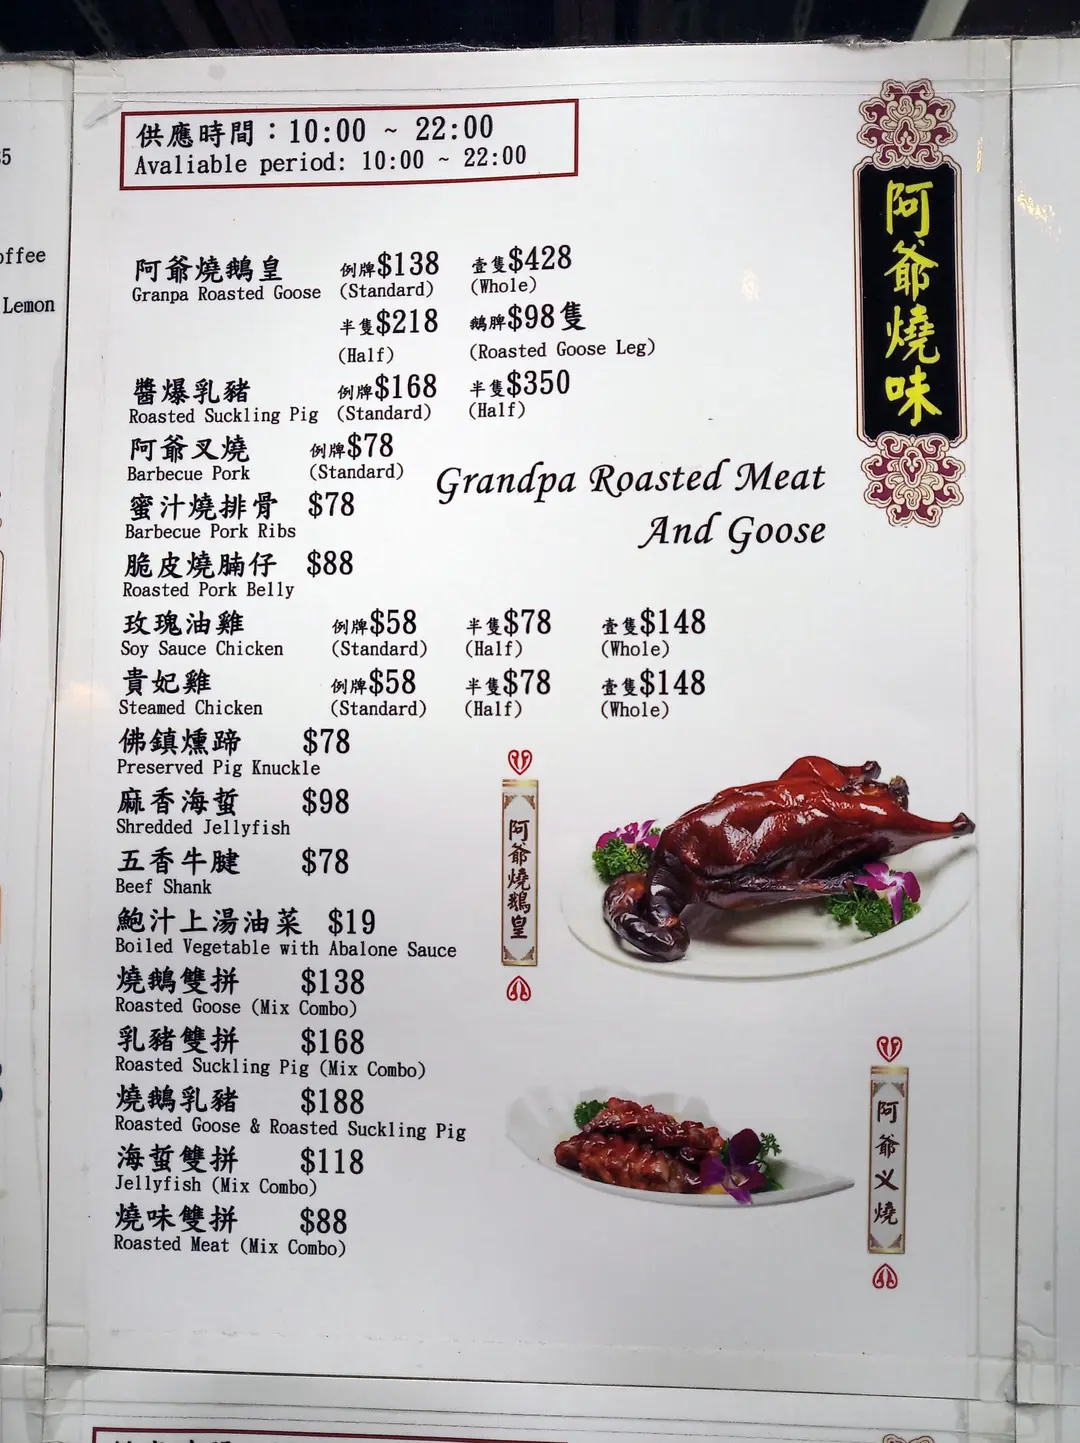 供應時間：10:00 ~ 22:00
Avaliable period: 10:00 ~ 22:00
阿爺燒味
offee
Lemon
阿爺燒鵝皇 例牌$138 壹隻$428
Granpa Roasted Goose (Standard) (Whole)
半隻$218 鵝脾$98隻
(Half) (Roasted Goose Leg)
醬爆乳豬 例牌$168 半隻$350
Roasted Suckling Pig (Standard) (Half)
阿爺叉燒 例牌$78
Barbecue Pork (Standard)
Grandpa Roasted Meat
And Goose
蜜汁燒排骨 $78
Barbecue Pork Ribs
脆皮燒腩仔 $88
Roasted Pork Belly
玫瑰油雞 例牌$58 半隻$78 壹隻$148
Soy Sauce Chicken (Standard) (Half) (Whole)
貴妃雞 例牌$58 半隻$78 壹隻$148
Steamed Chicken (Standard) (Half) (Whole)
佛鎮燻蹄 $78
Preserved Pig Knuckle
麻香海蜇 $98
Shredded Jellyfish
五香牛腱 $78
Beef Shank
鮑汁上湯油菜 $19
Boiled Vegetable with Abalone Sauce
燒鵝雙拼 $138
Roasted Goose (Mix Combo)
乳豬雙拼 $168
Roasted Suckling Pig (Mix Combo)
燒鵝乳豬 $188
Roasted Goose & Roasted Suckling Pig
海蜇雙拼 $118
Jellyfish (Mix Combo)
燒味雙拼 $88
Roasted Meat (Mix Combo)
阿爺燒鵝皇
阿爺义燒